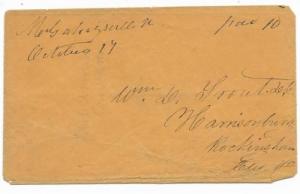 McGaheysville Va Paid 10
October 17
Wm. D. Trout
Harrisonburg
Rockingham